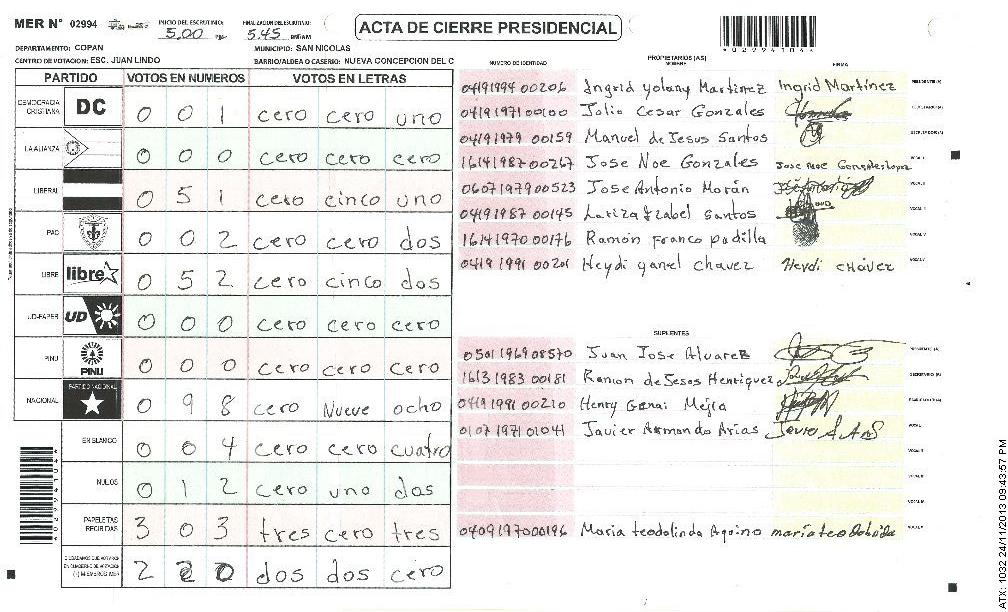 MER N° 02994
INICIO DEL ESCRUTINIO: 5:00 PM
FINALIZACION DEL ESCRUTINIO: 5:45
ACTA DE CIERRE PRESIDENCIAL
DEPARTAMENTO: COPAN MUNICIPIO: SAN NICOLAS
CENTRO DE VOTACION: ESC. JUAN LINDO BARRIO/ALDEA O CASERIO: NUEVA CONCEPCION DEL C
PARTIDO VOTOS EN NUMEROS VOTOS EN LETRAS
DEMOCRACIA CRISTIANA DC 0 0 1 cero cero uno
LA ALIANZA 0 0 0 cero cero cero
LIBERAL 0 5 1 cero cinco uno
PAC 0 0 2 cero cero dos
LIBRE libre 0 5 2 cero cinco dos
UD-FAPER UD 0 0 0 cero cero cero
PINU PINU 0 0 0 cero cero cero
NACIONAL PARTIDO NACIONAL 0 9 8 cero Nueve ocho
EN BLANCO 0 0 4 cero cero cuatro
NULOS 0 1 2 cero uno dos
PAPELETAS RECIBIDAS 3 0 3 tres cero tres
2 2 0 dos dos cero
NUMERO DE IDENTIDAD PROPIETARIOS (AS) NOMBRE FIRMA
0419 1994 00206 Ingrid yolany Martinez Ingrid Martínez PRESIDENTE (A)
0419 1971 00100 Jolio Cesar Gonzales SECRETARIO (A)
0419 1979 00159 Manuel de Jesus Santos ESCRUTADOR (A)
1614 1987 00267 Jose Noe Gonzales Jose Noe Gonzales Lopez VOCAL I
0607 1979 00523 Jose Antonio Morán VOCAL II
0419 1987 00145 Lariza Izabel santos
1614 1970 00176 Ramón franco padilla
0419 1991 00201 Heydi yanel chavez Heydi chávez
SUPLENTES
0501 1969 08570 Juan Jose Alvarez PRESIDENTE (A)
1613 1983 00181 Ramon de Jesos Henriquez SECRETARIO (A)
0419 1991 00210 Henry Genai Mejia ESCRUTADOR (A)
0107 1971 01041 Javier Armando Arias VOCAL I
0409 1970 00196 Maria teodolinda Aquino
ATX: 1032 24/11/2013 09:43:57 PM